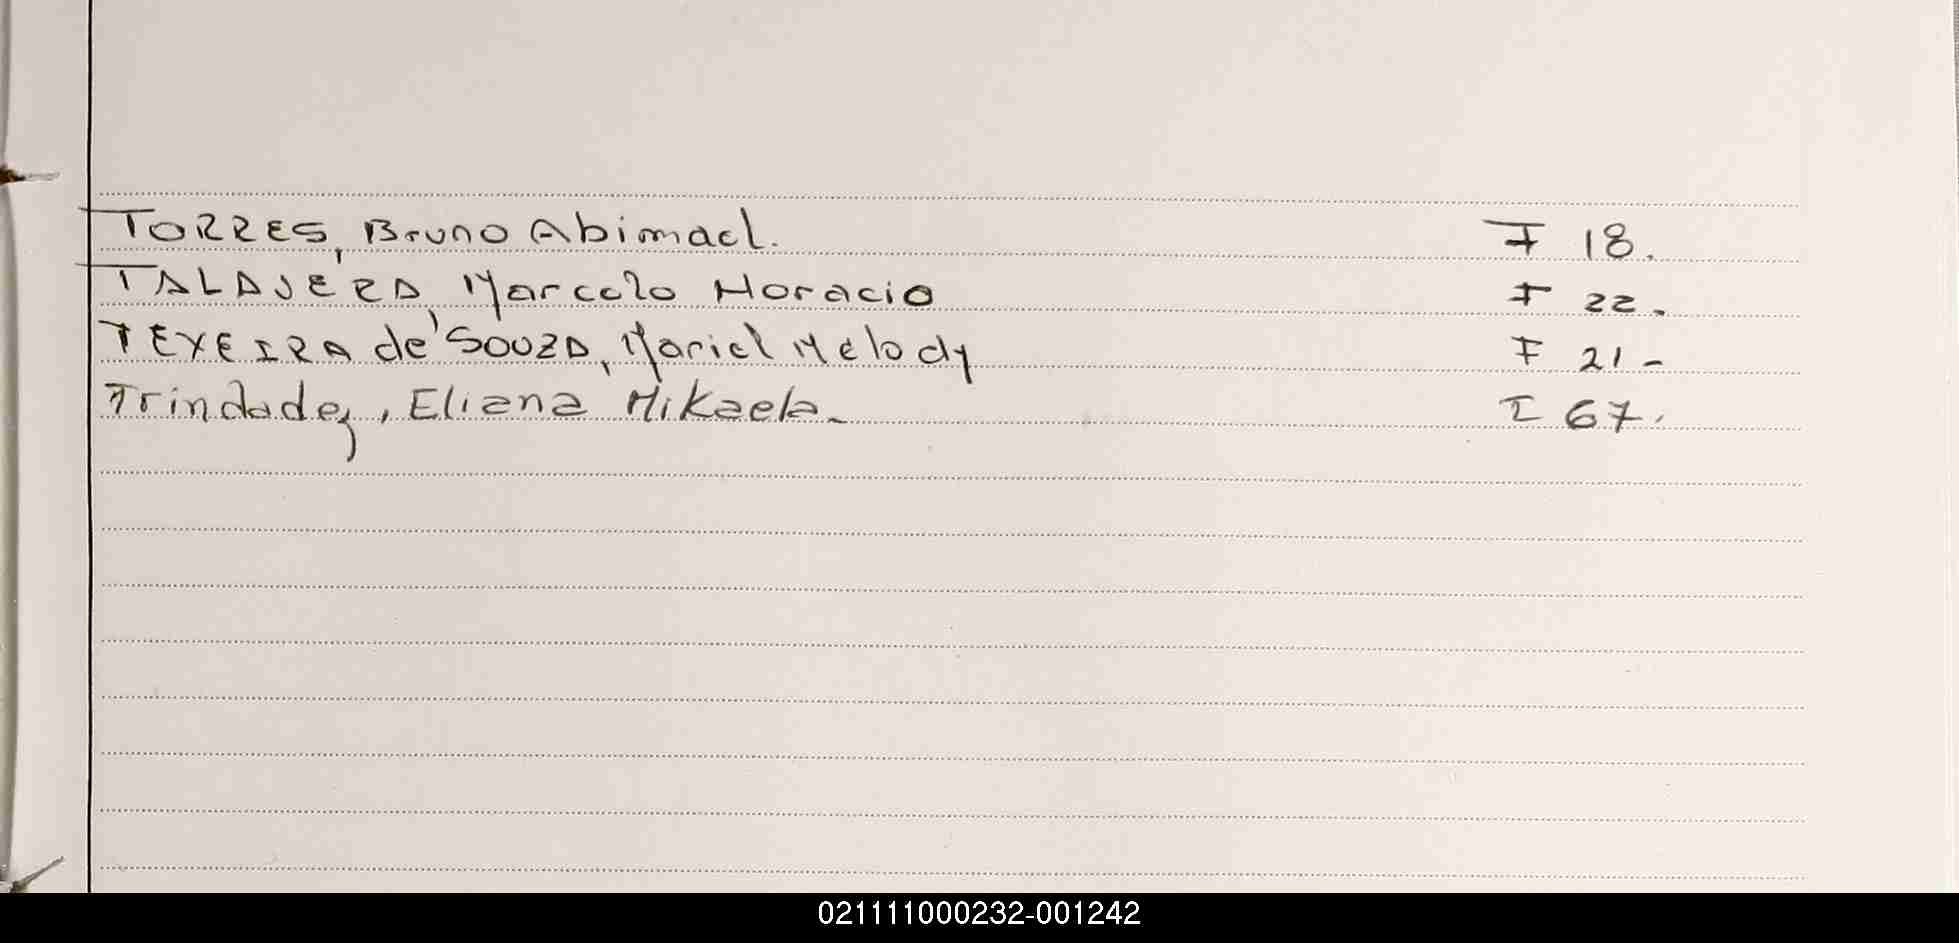 TORRES, Bruno Abimael. F 18.
TALAVERA, Marcelo Horacio F 22.
TEXEIRA de SOUZA, Mariel Melody F 21-
Trindadez, Eliana Mikaela. I 67.
021111000232-001242